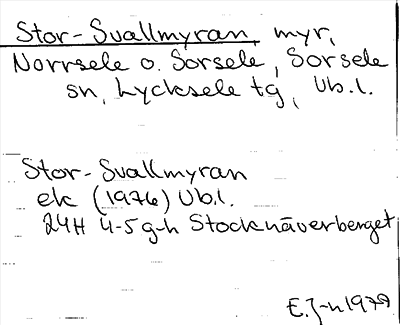 Stor-Svallmyran, myr,
Norrsele o. Sorsele, Sorsele
sn, Lycksele tg, Vb.l.
Stor-Svallmyran
ek (1976) Vb.l.
24H 4-5 g-h Stocknäverberget
E.J-n 1979